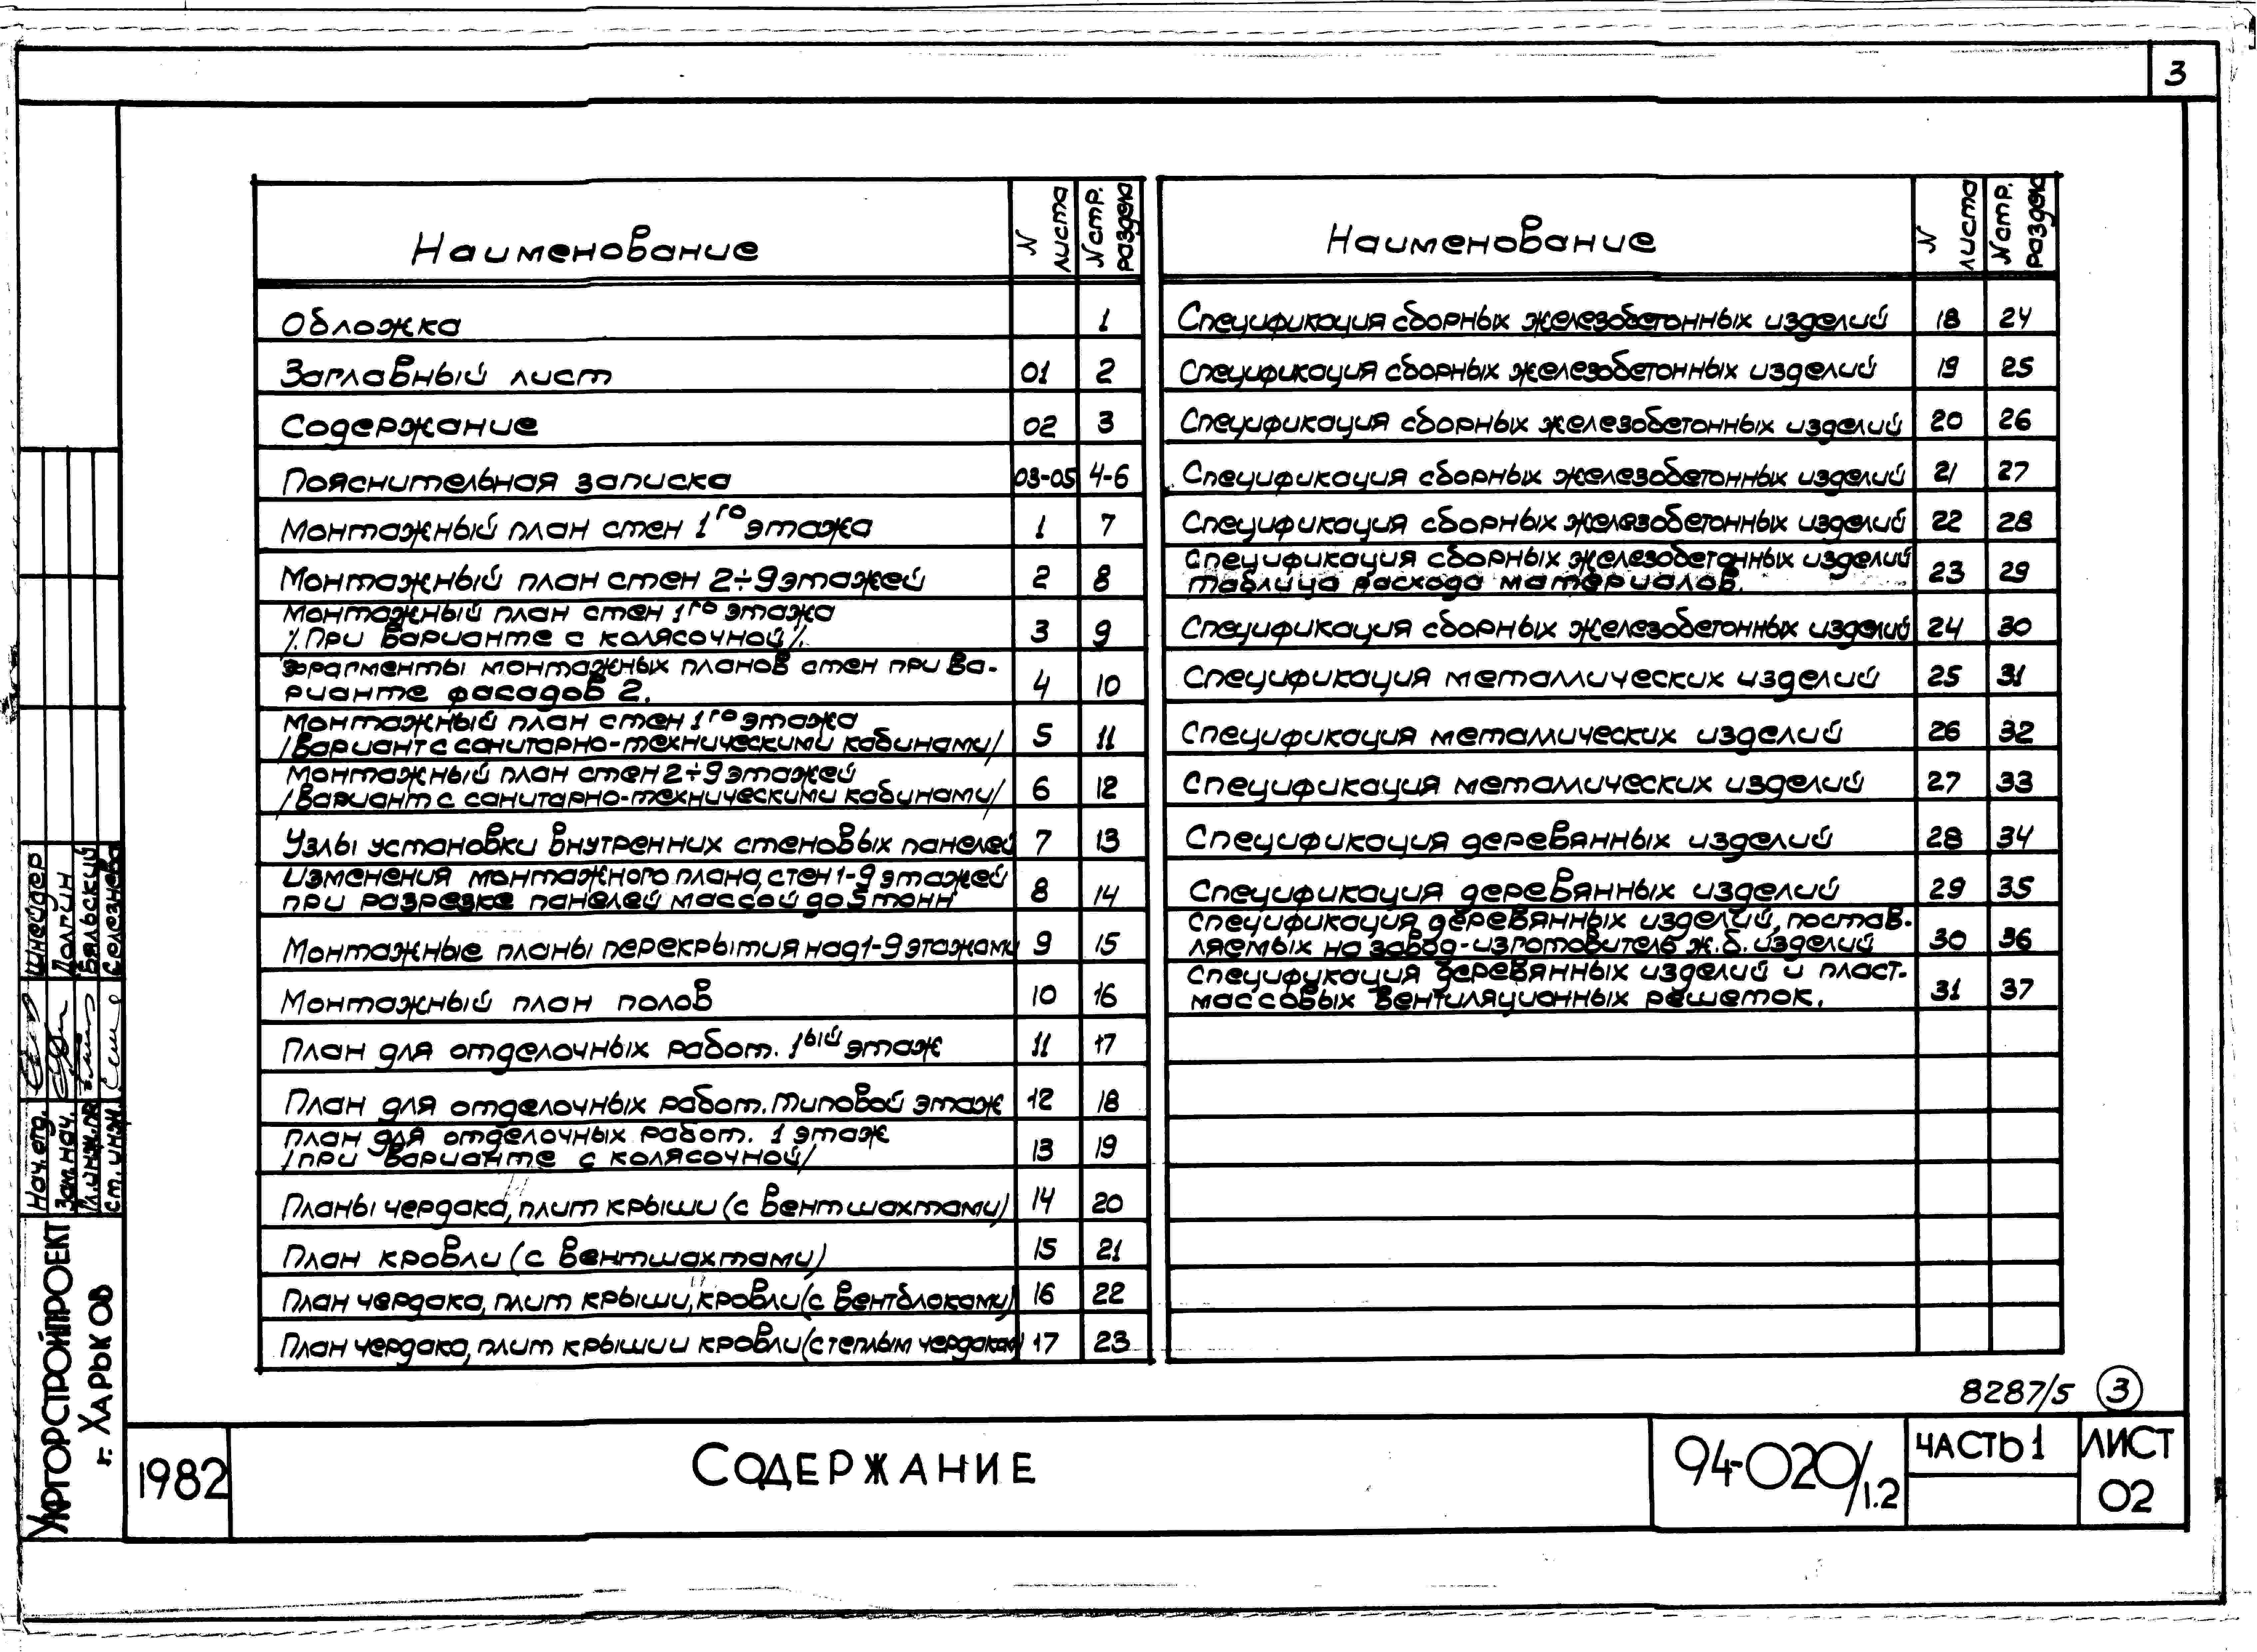 3
Наименование
N листа
N стр. раздела
Обложка 1
Заглавный лист 01 2
Содержание 02 3
Пояснительная записка 03-05 4-6
Монтажный план стен 1го этажа 1 7
Монтажный план стен 2÷9 этажей 2 8
Монтажный план стен 1го этажа
/При варианте с колясочной/. 3 9
Фрагменты монтажных планов стен при ва-
рианте фасадов 2. 4 10
Монтажный план стен 1го этажа
/Вариант с санитарно-техническими кабинами/ 5 11
Монтажный план стен 2÷9 этажей
/Вариант с санитарно-техническими кабинами/ 6 12
Узлы установки внутренних стеновых панелей 7 13
Изменения монтажного плана стен 1-9 этажей
при разрезке панелей массой до 5 тонн 8 14
Монтажные планы перекрытия над 1-9 этажами 9 15
Монтажный план полов 10 16
План для отделочных работ. 1ый этаж 11 17
План для отделочных работ. Типовой этаж 12 18
План для отделочных работ. 1 этаж
/при варианте с колясочной/ 13 19
Планы чердака, плит крыши (с вентшахтами) 14 20
План кровли (с вентшахтами) 15 21
План чердака, плит крыши, кровли (с вентблоками) 16 22
План чердака, плит крыши и кровли (с теплым чердаком) 17 23
Наименование
N листа
N стр. раздела
Спецификация сборных железобетонных изделий 18 24
Спецификация сборных железобетонных изделий 19 25
Спецификация сборных железобетонных изделий 20 26
Спецификация сборных железобетонных изделий 21 27
Спецификация сборных железобетонных изделий 22 28
Спецификация сборных железобетонных изделий
таблица расхода материалов. 23 29
Спецификация сборных железобетонных изделий 24 30
Спецификация металлических изделий 25 31
Спецификация металлических изделий 26 32
Спецификация металлических изделий 27 33
Спецификация деревянных изделий 28 34
Спецификация деревянных изделий 29 35
Спецификация деревянных изделий, постав-
ляемых на завод-изготовитель ж.б. изделий 30 36
Спецификация деревянных изделий и пласт-
массовых вентиляционных решеток. 31 37
8287/5 3
Нач. отд. Шнейдер
Зам. нач. Долгин
Гл. инж. пр. Бяльский
Ст. инж. Селезнева
Укргорстройпроект
г. Харьков
1982
Содержание
94-020/1.2
Часть 1
Лист
02